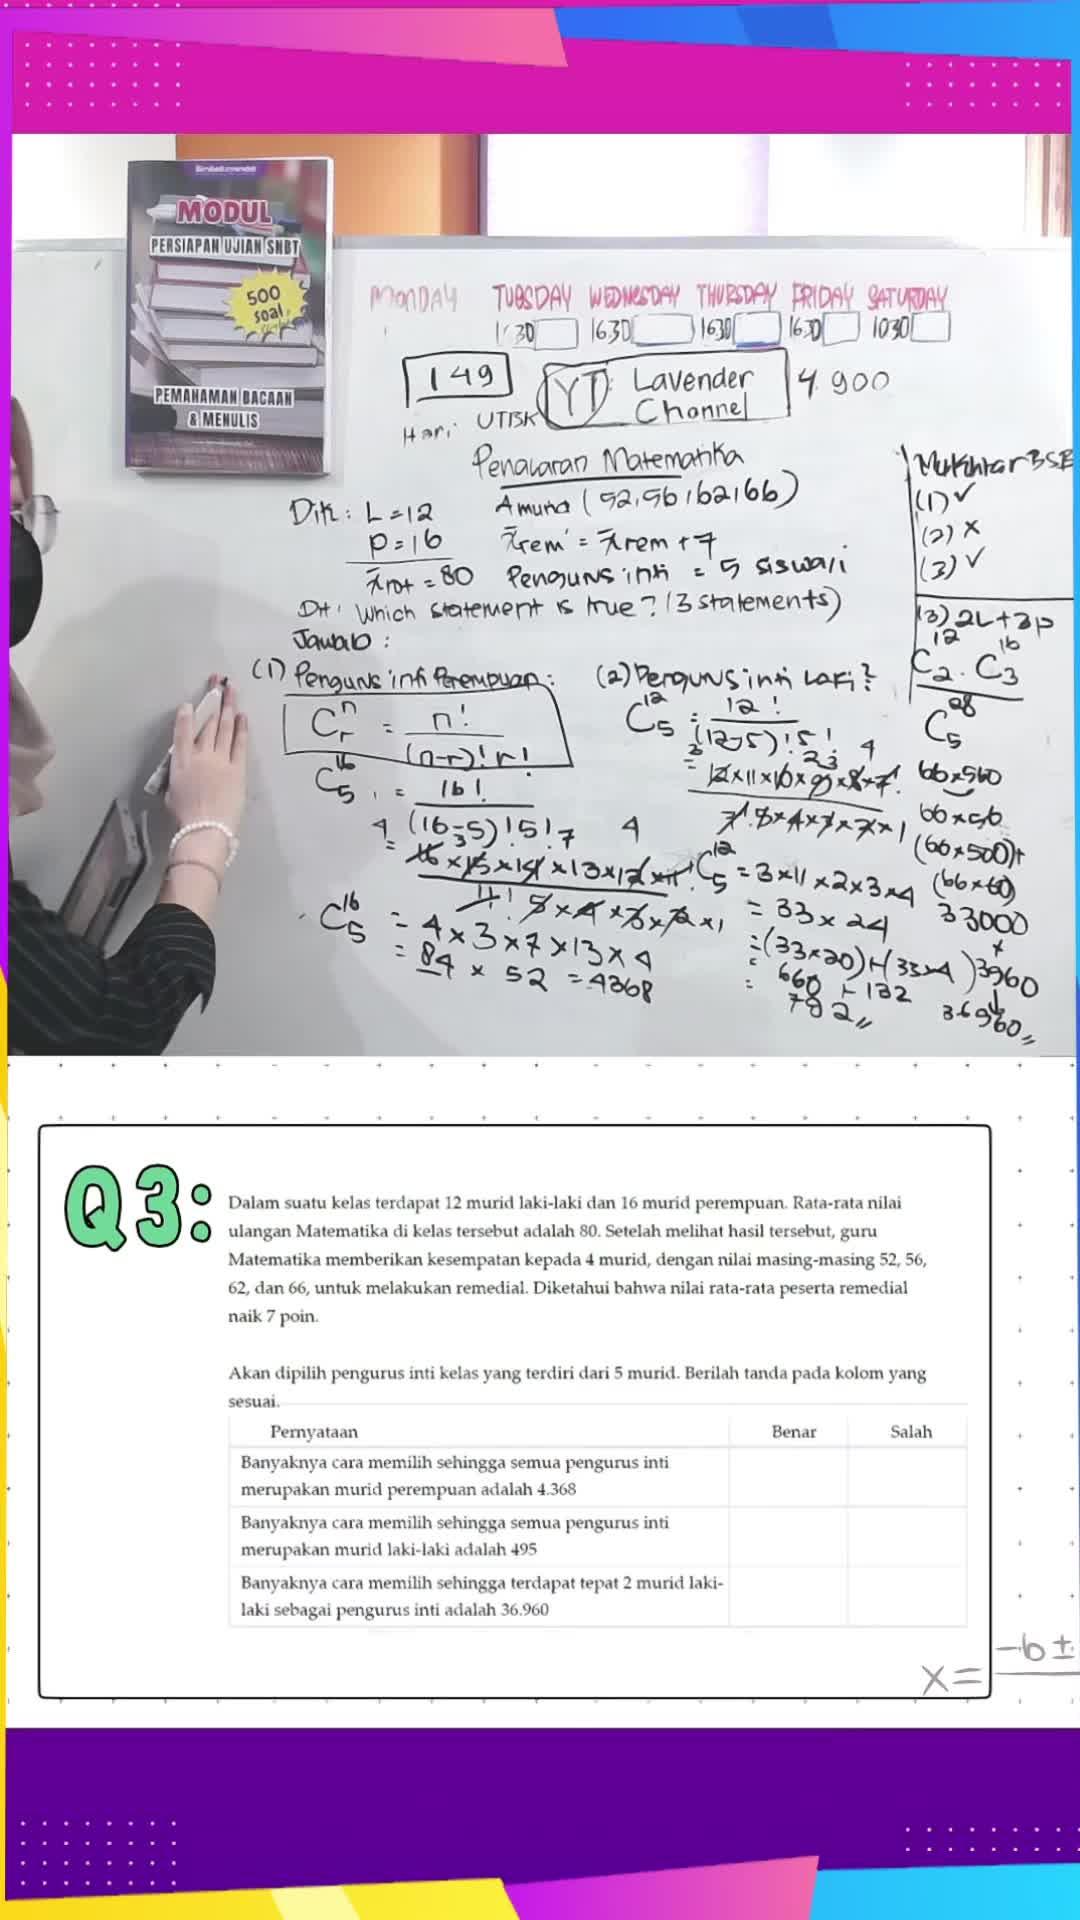 MODUL
PERSIAPAN UJIAN SNBT
500
soal
PEMAHAMAN BACAAN
& MENULIS
MONDAY TUESDAY WEDNESDAY THURSDAY FRIDAY SATURDAY
1630 1630 1630 1030
149
YT: Lavender
Channel
4.900
Hari UTBK
Penalaran Matematika
Mukhtar BSE
Dik: L = 12
Amurid (52,56,62,66)
(1) ✓
P = 16
x̄rem' = x̄rem + 7
(2) ×
x̄tot = 80 Pengurus inti = 5 siswa/i
(3) ✓
Dit: Which statement is true? (3 statements)
Jawab:
(1) Pengurus inti Perempuan:
C n r = n! / (n-r)! r!
C 16 5 = 16! / (16-5)! 5!
= 16×15×14×13×12×11! / 11! 5×4×3×2×1
C 16 5 = 4×3×7×13×4
= 84 × 52 = 4368
(2) Pengurus inti Laki?
C 12 5 = 12! / (12-5)! 5!
= 12×11×10×9×8×7! / 7! 5×4×3×2×1
C 12 5 = 3×11×2×3×4
= 33 × 24
= (33×20) + (33×4)
= 660 + 132
= 792,,
(3) 2L + 3P
C 12 2 . C 16 3
C 28 5
66×560
66×56
(66×500)+
(66×60)
33000
+
3960
36960,,
Q3:
Dalam suatu kelas terdapat 12 murid laki-laki dan 16 murid perempuan. Rata-rata nilai
ulangan Matematika di kelas tersebut adalah 80. Setelah melihat hasil tersebut, guru
Matematika memberikan kesempatan kepada 4 murid, dengan nilai masing-masing 52, 56,
62, dan 66, untuk melakukan remedial. Diketahui bahwa nilai rata-rata peserta remedial
naik 7 poin.
Akan dipilih pengurus inti kelas yang terdiri dari 5 murid. Berilah tanda pada kolom yang
sesuai.
Pernyataan Benar Salah
Banyaknya cara memilih sehingga semua pengurus inti
merupakan murid perempuan adalah 4.368
Banyaknya cara memilih sehingga semua pengurus inti
merupakan murid laki-laki adalah 495
Banyaknya cara memilih sehingga terdapat tepat 2 murid laki-
laki sebagai pengurus inti adalah 36.960
x = -b ±